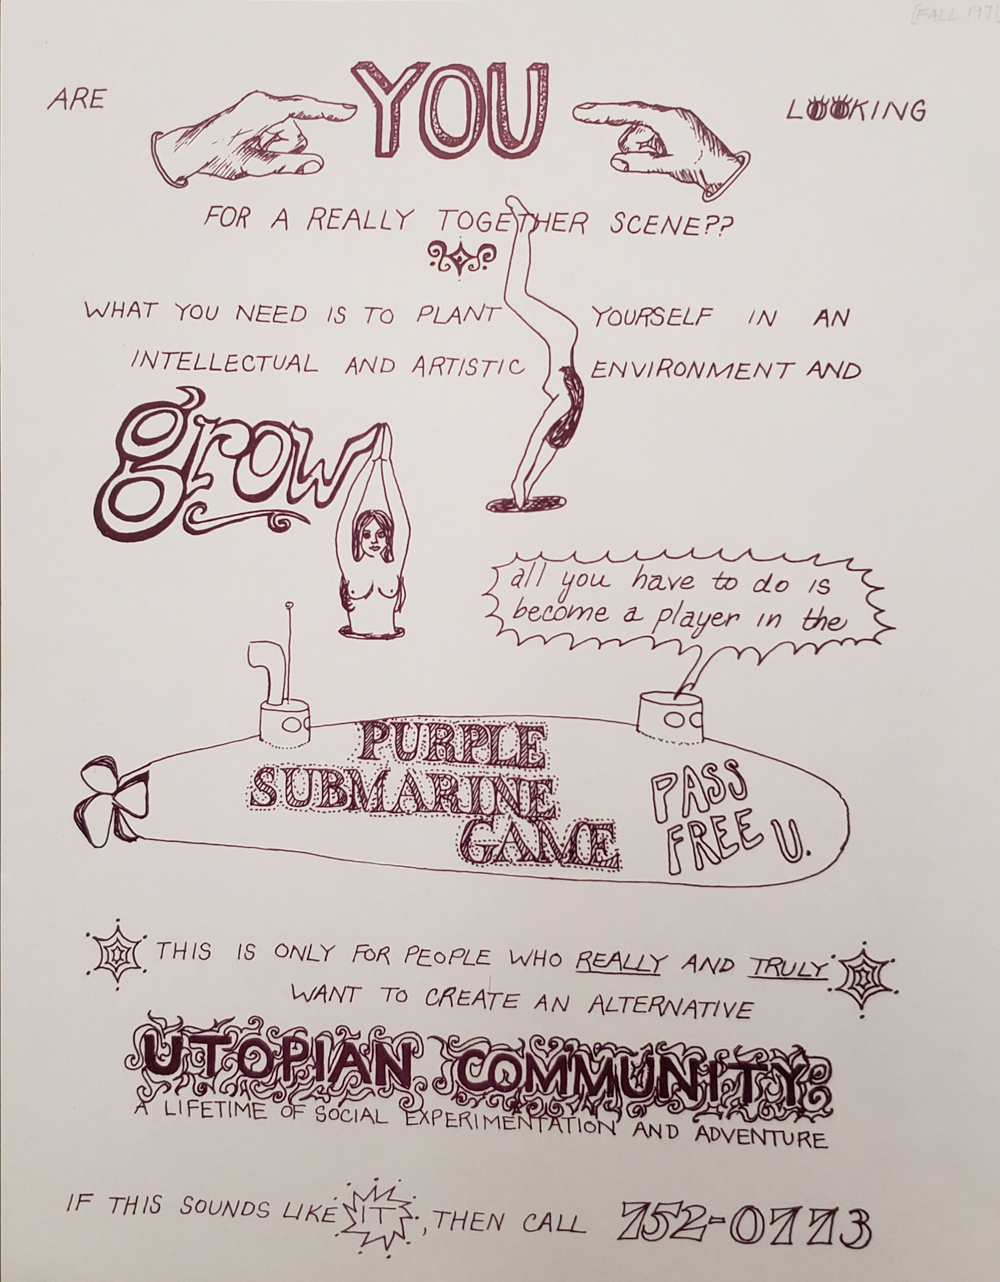 [FALL 1971]
ARE YOU LOOKING
FOR A REALLY TOGETHER SCENE??
WHAT YOU NEED IS TO PLANT YOURSELF IN AN
INTELLECTUAL AND ARTISTIC ENVIRONMENT AND
grow
all you have to do is
become a player in the
PURPLE
SUBMARINE
GAME
PASS
FREE U.
THIS IS ONLY FOR PEOPLE WHO REALLY AND TRULY
WANT TO CREATE AN ALTERNATIVE
UTOPIAN COMMUNITY
A LIFETIME OF SOCIAL EXPERIMENTATION AND ADVENTURE
IF THIS SOUNDS LIKE IT, THEN CALL 752-0773